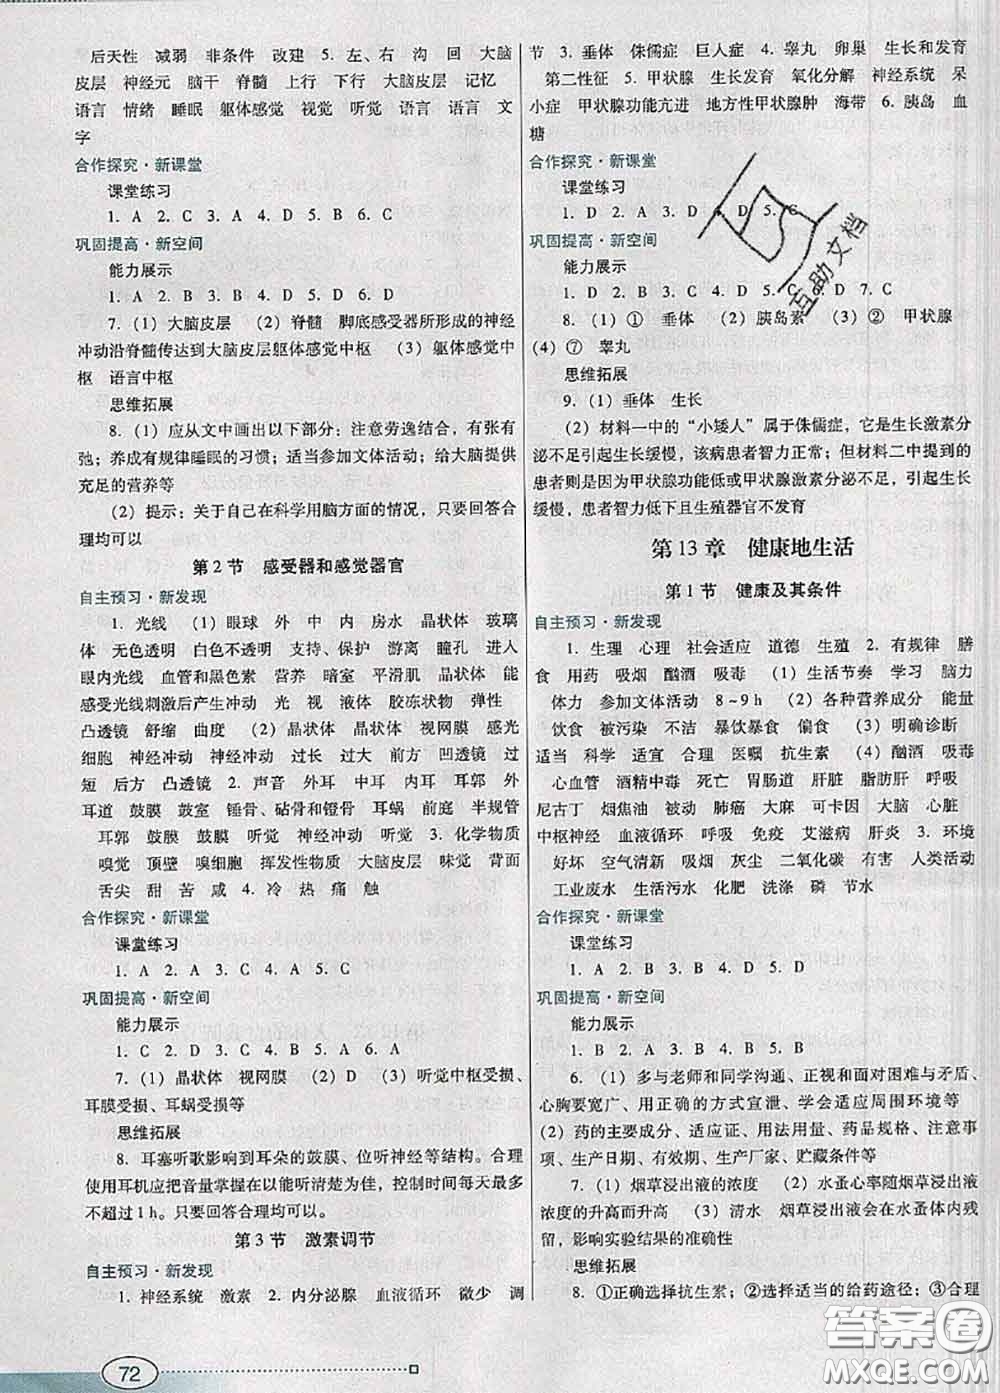 后天性 减弱 非条件 改建 5. 左、右 沟 回 大脑
皮层 神经元 脑干 脊髓 上行 下行 大脑皮层 记忆
语言 情绪 睡眠 躯体感觉 视觉 听觉 语言 语言 文
字
合作探究·新课堂
课堂练习
1. A 2. C 3. A 4. D 5. B 6. C
巩固提高·新空间
能力展示
1. A 2. B 3. B 4. C 5. D 6. D
7. (1) 大脑皮层 (2) 脊髓 脚底感受器所形成的神经
冲动沿脊髓传达到大脑皮层躯体感觉中枢 (3) 躯体感觉中
枢 语言中枢
思维拓展
8. (1) 应从文中画出以下部分：注意劳逸结合，有张有
弛；养成有规律睡眠的习惯；适当参加文体活动；给大脑提供
充足的营养等
(2) 提示：关于自己在科学用脑方面的情况，只要回答合
理均可以
第 2 节 感受器和感觉器官
自主预习·新发现
1. 光线 (1) 眼球 外 中 内 房水 晶状体 玻璃
体 无色透明 白色不透明 支持、保护 游离 瞳孔 进入
眼内光线 血管和黑色素 营养 暗室 平滑肌 晶状体
感受光线刺激后产生冲动 光 视 液体 胶冻状物 弹性
凸透镜 舒缩 曲度 (2) 晶状体 晶状体 视网膜 感光
细胞 神经冲动 神经冲动 过长 过大 前方 凹透镜 过
短 后方 凸透镜 2. 声音 外耳 中耳 内耳 耳郭 外
耳道 鼓膜 鼓室 锤骨、砧骨和镫骨 耳蜗 前庭 半规管
耳郭 鼓膜 鼓膜 听觉 神经冲动 听觉 3. 化学物质
嗅觉 顶壁 嗅细胞 挥发性物质 大脑皮层 味觉 背面
舌尖 甜 苦 咸 4. 冷 热 痛 触
合作探究·新课堂
课堂练习
1. A 2. A 3. C 4. A 5. C
巩固提高·新空间
能力展示
1. C 2. D 3. C 4. B 5. A 6. A
7. (1) 晶状体 视网膜 (2) D (3) 听觉中枢受损、
耳膜受损、耳蜗受损等
思维拓展
8. 耳塞听歌影响到耳朵的鼓膜、位听神经等结构。合理
使用耳机应把音量掌握在以能听清楚为佳，控制时间每天最多
不超过 1 h。只要回答合理均可以。
第 3 节 激素调节
自主预习·新发现
1. 神经系统 激素 2. 内分泌腺 血液循环 微少 调
72
节 3. 垂体 侏儒症 巨人症 4. 睾丸 卵巢 生长和发育
第二性征 5. 甲状腺 生长发育 氧化分解 神经系统 呆
小症 甲状腺功能亢进 地方性甲状腺肿 海带 6. 胰岛 血
糖
合作探究·新课堂
课堂练习
1. D 2. A 3. D 4. D 5. C
巩固提高·新空间
能力展示
1. D 2. A 3. D 4. D 5. C 6. D 7. C
8. (1) ① 垂体 (2) 胰岛素 (3) ② 甲状腺
(4) ⑦ 睾丸
思维拓展
9. (1) 垂体 生长
(2) 材料一中的“小矮人”属于侏儒症，它是生长激素分
泌不足引起生长缓慢，该病患者智力正常；但材料二中提到的
患者则是因为甲状腺功能低或甲状腺激素分泌不足，引起生长
缓慢，患者智力低下且生殖器官不发育
第 13 章 健康地生活
第 1 节 健康及其条件
自主预习·新发现
1. 生理 心理 社会适应 道德 生殖 2. 有规律 膳
食 用药 吸烟 酗酒 吸毒 (1) 生活节奏 学习 脑力
体力 参加文体活动 8~9 h (2) 各种营养成分 能量
饮食 被污染 不洁 暴饮暴食 偏食 (3) 明确诊断
适当 科学 适宜 合理 医嘱 抗生素 (4) 酗酒 吸毒
心血管 酒精中毒 死亡 胃肠道 肝脏 脂肪肝 呼吸
尼古丁 烟焦油 被动 肺癌 大麻 可卡因 大脑 心脏
中枢神经 血液循环 呼吸 免疫 艾滋病 肝炎 3. 环境
好坏 空气清新 吸烟 灰尘 二氧化碳 有害 人类活动
工业废水 生活污水 化肥 洗涤 磷 节水
合作探究·新课堂
课堂练习
1. A 2. B 3. B 4. D 5. D
巩固提高·新空间
能力展示
1. B 2. A 3. B 4. B 5. B
6. (1) 多与老师和同学沟通、正视和面对困难与矛盾、
心胸要宽广、用正确的方式宣泄、学会适应周围环境等
(2) 药的主要成分、适应证、用法用量、药品规格、注意事
项、生产日期、有效期、生产厂家、贮藏条件等
7. (1) 烟草浸出液的浓度 (2) 水蚤心率随烟草浸出液
浓度的升高而升高 (3) 清水 烟草浸出液会在水蚤体内残
留，影响实验结果的准确性
思维拓展
8. ①正确选择抗生素；②选择适当的给药途径；③合理
互助文档
答案圈
MXQE.COM